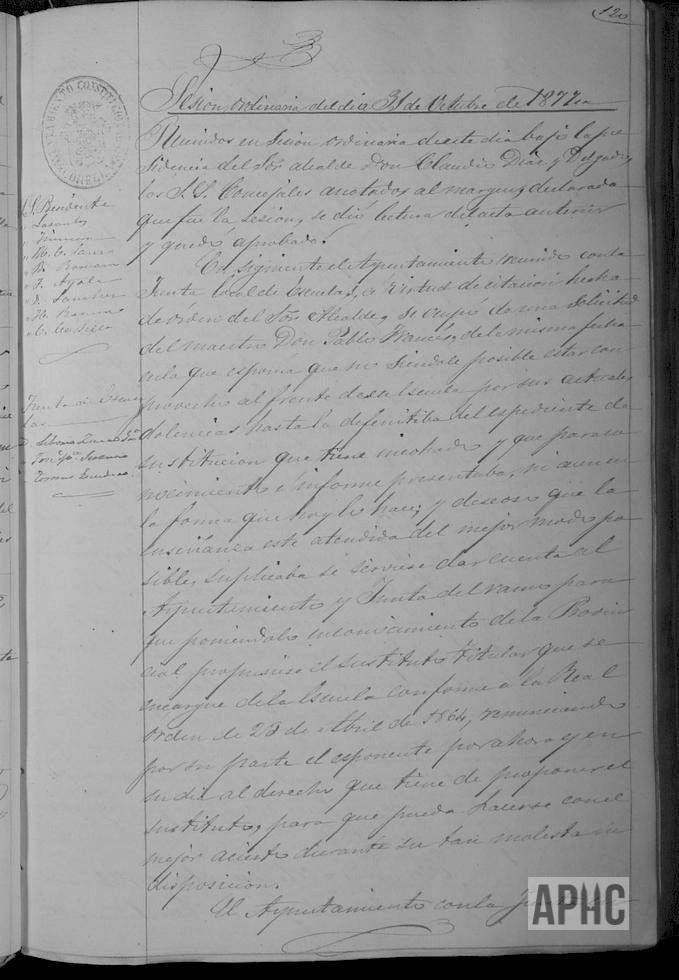 120
Sesion ordinaria del dia 31 de Octubre de 1877
Reunidos en sesion ordinaria de este dia bajo la pre
sidencia del Sor. alcalde Don Claudio Diaz y Delgado,
los S.S. Concejales anotados al margen, declarada
que fue la sesion, se dió lectura del acta anterior
y quedó aprobada.
En siguiente el Ayuntamiento reunido con la
Junta local de Escuelas, a virtud de citacion hecha
de orden del Sor. Alcalde, se ocupó de una solicitud
del maestro Don Pablo Francés, de la misma fecha
en la que espone que no siendole posible estar con
provecho al frente de la Escuela por sus actuales
dolencias hasta la definitiba del espediente de
sustitucion que tiene incohado y que para co
nocimiento e informe presentaba, ni aun en
la forma que hoy lo hace; y deseoso que la
enseñanza esté atendida del mejor modo po
sible, suplicaba se serviese dar cuenta al
Ayuntamiento y Junta del ramo para
que poniendolo in conocimiento de la Provin
cial, propusiese el sustituto titular que se
encargue de la Escuela conforme a la Real
orden de 23 de Abril de 1864, renunciando
por su parte el esponente por ahora y en
su dia al derecho que tiene de proponer el
sustituto, para que pueda hacerse con el
mejor acierto durante su tan molesta in
disposicion.
El Ayuntamiento con la Junta
S. Presidente
Lasanta
M. C. Sanz
Roman
Ayala
Sanchez
Junta de Escue
las
Torres
APHC